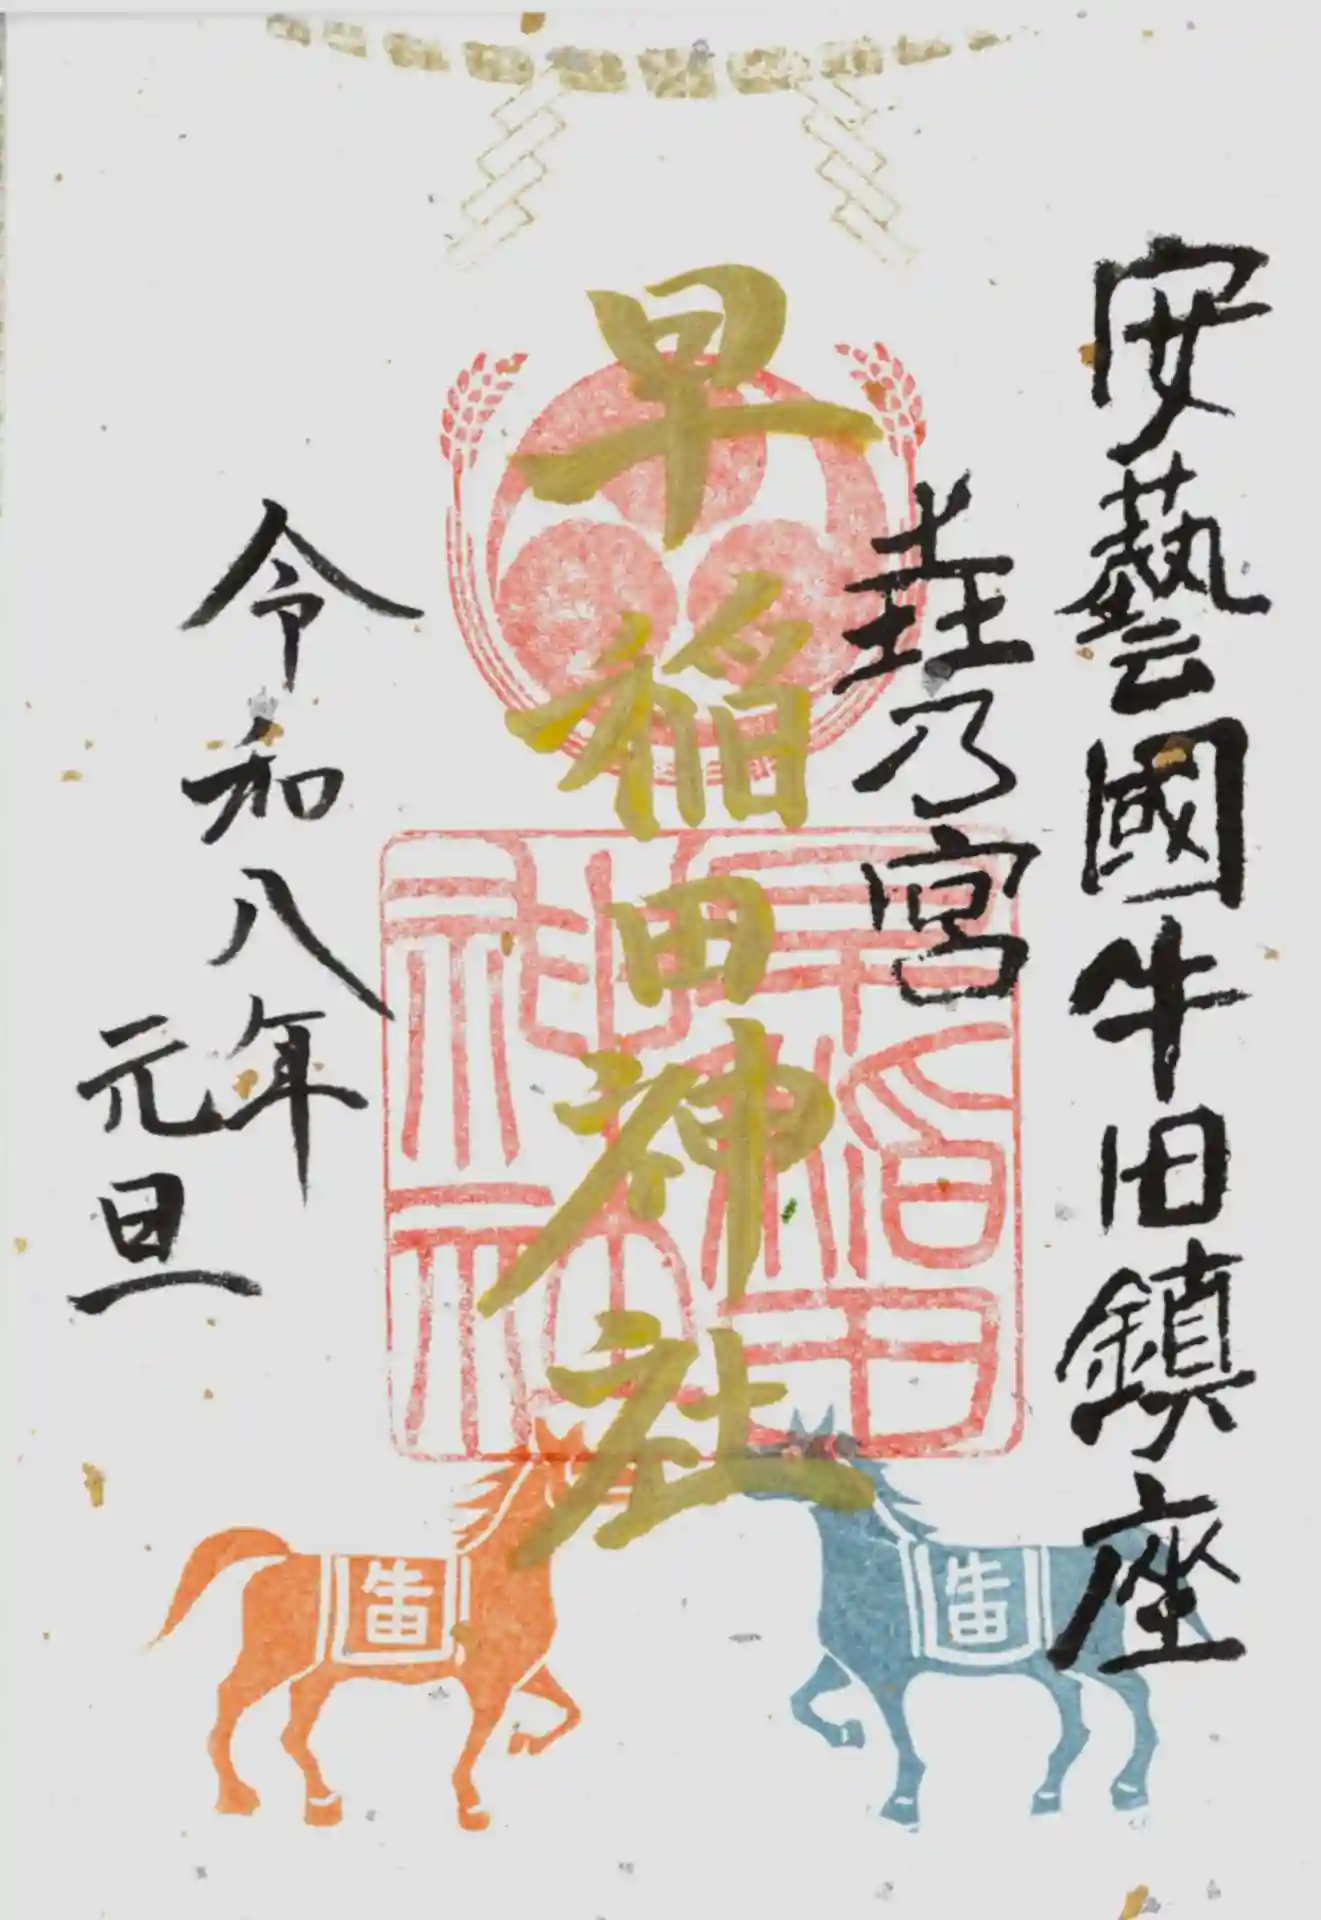 安藝國牛田鎮座
乃宮
早稲田神社
令和八年
元旦
早稲田
神社
牛田
牛田